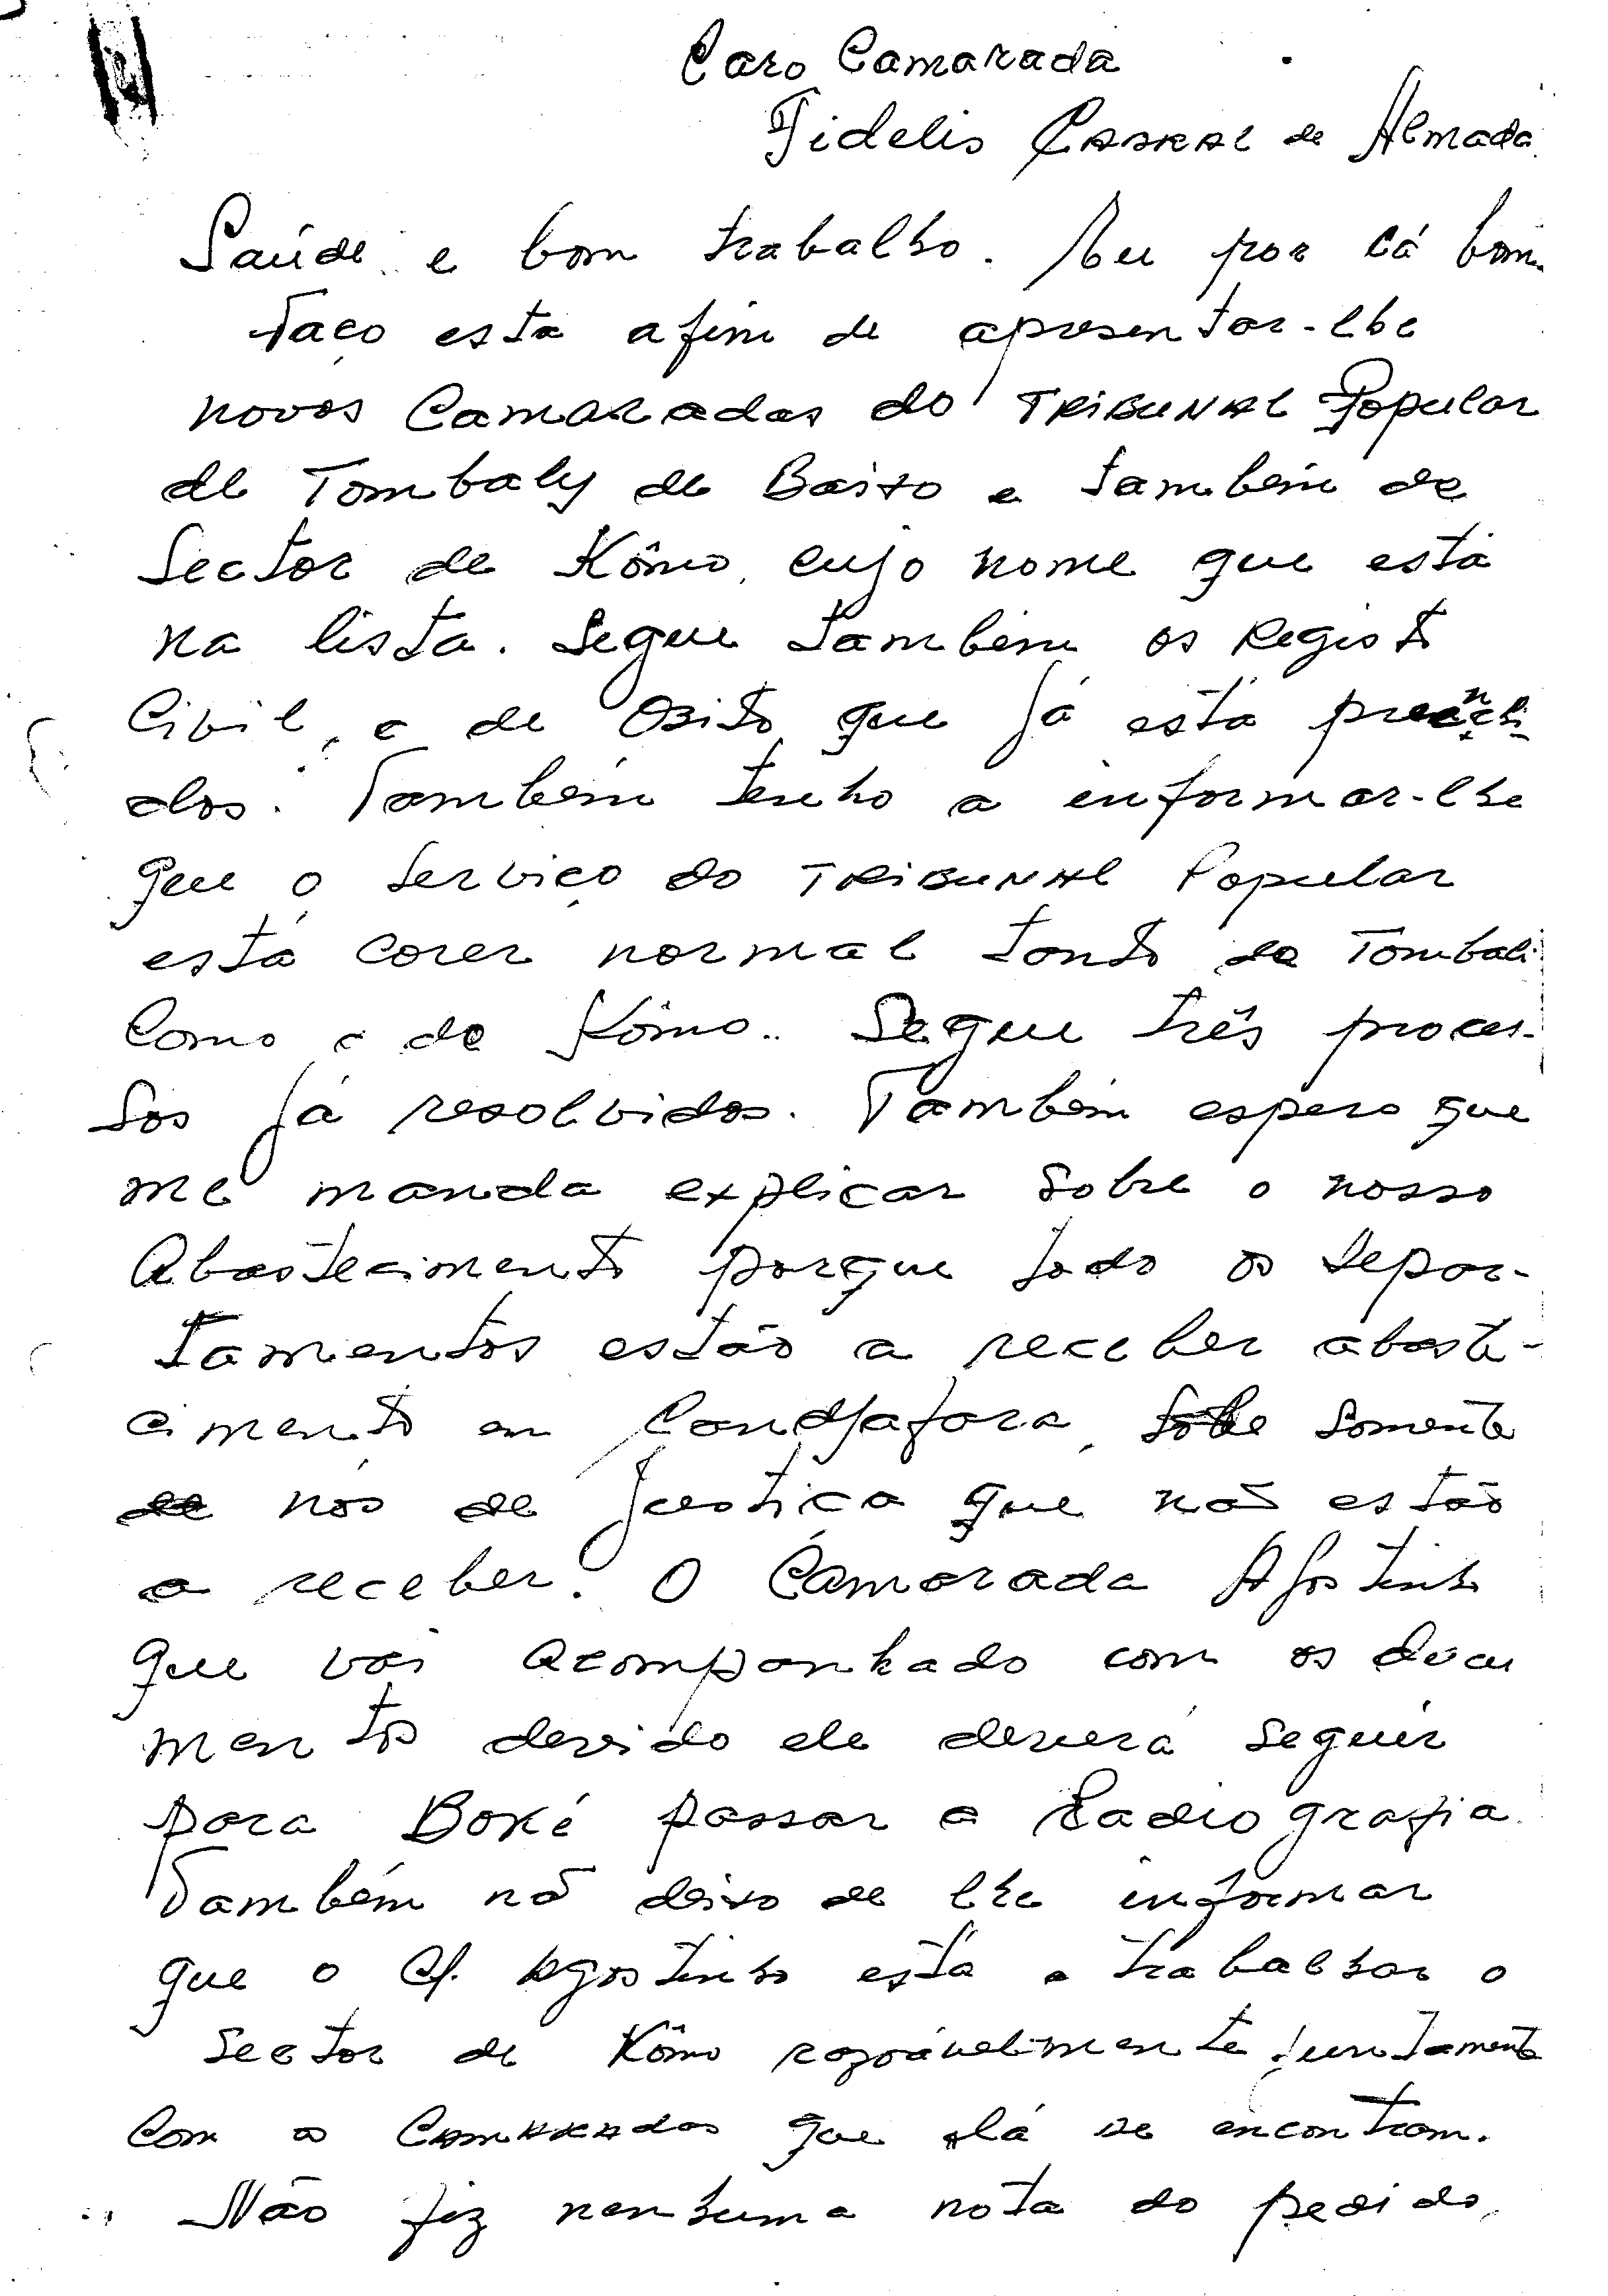 Caro Camarada
Fidelis Cabral de Almada.
Saúde e bom trabalho. Eu por cá bom.
Faço esta afim de apresentar-lhe
novos Camaradas do TRIBUNAL Popular
de Tombaly de Baixo e também de
Sector de Kômo, cujo nome que está
na lista. Segue também os Registo
Civil, e de Obito que já está preenchi-
dos. Também tenho a informar-lhe
que o serviço do TRIBUNAL Popular
está corer normal tanto de Tombali
Como e de Kômo.. Segue três proces-
sos já resolvidos. Também espero que
me manda explicar sobre o nosso
Abastecimento porque todo os Depar-
tamentos estão a receber abaste-
cimento em Candjafara, somente
nós de Justiça que não estão
a receber. O Camarada Agostinho
que vai acompanhado com os docu
mentos devido ele deverá seguir
para Boké passar a Radiografia.
Também não deixo de lhe informar
que o Cf. Agostinho está a trabalhar o
Sector de Kômo razoávelmente juntamente
Com os Camaradas que lá se encontram.
Não fiz nenhuma nota do pedido,